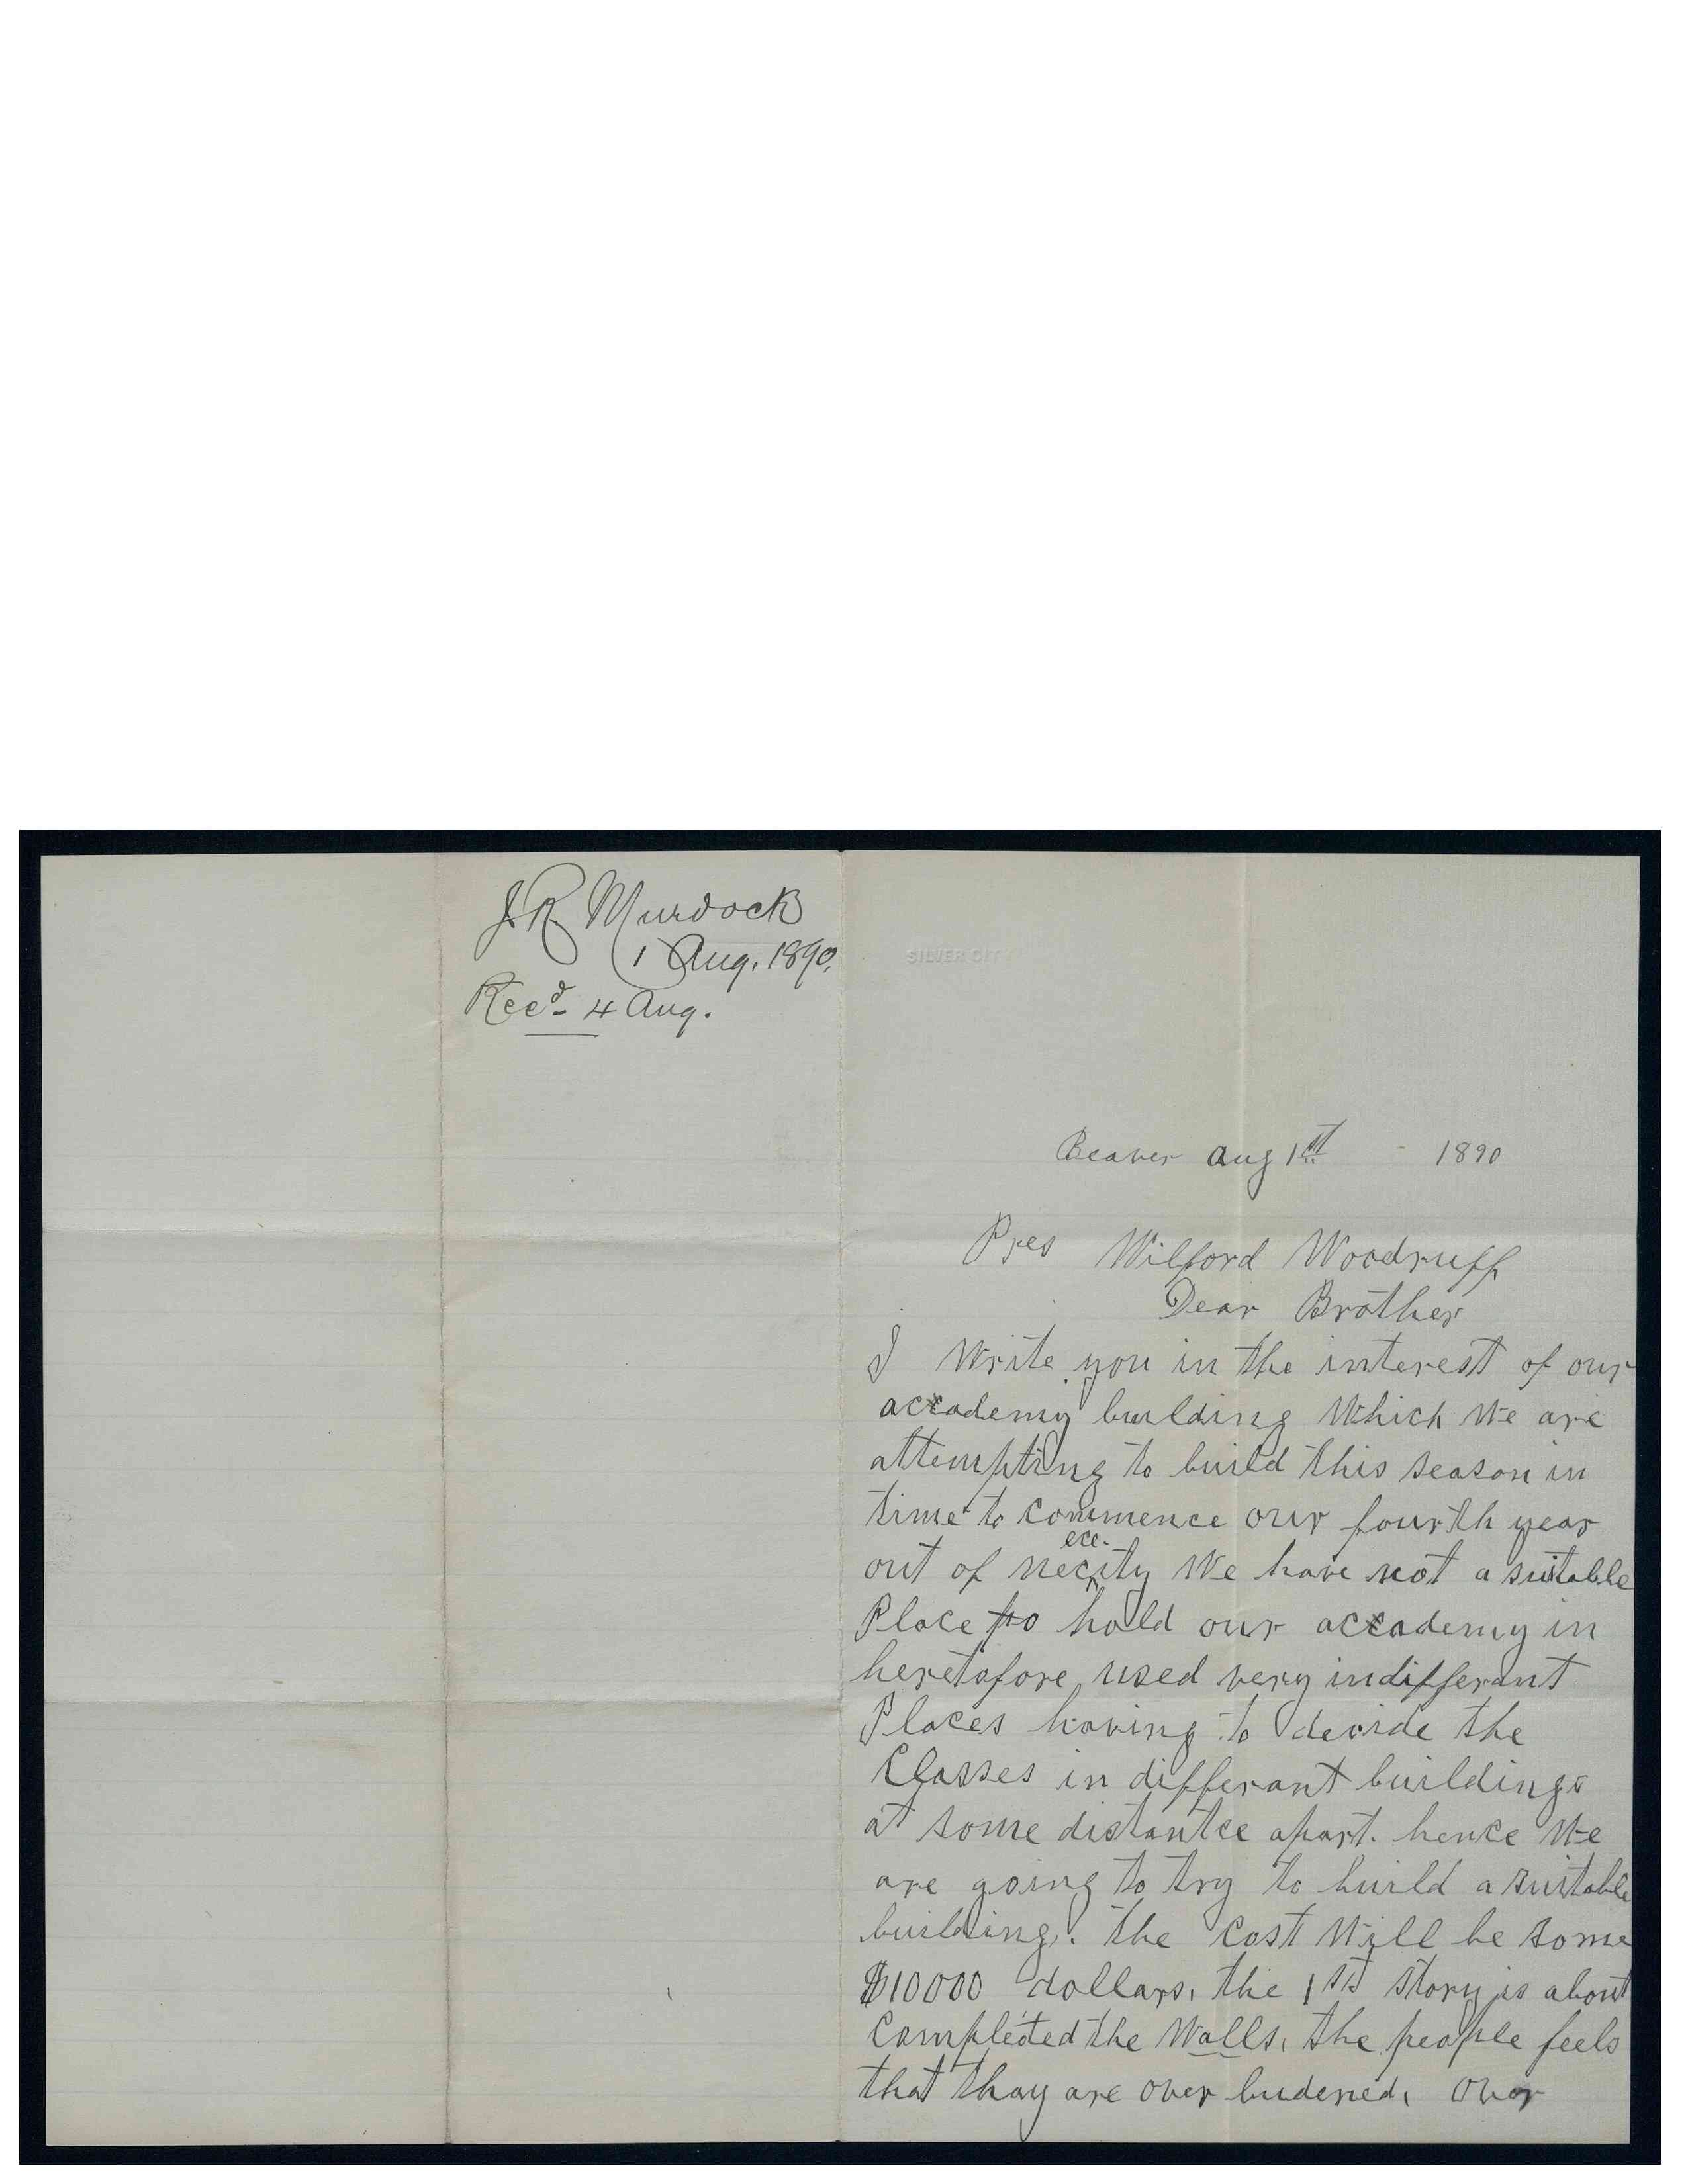 J. R. Murdock
1 Aug. 1890.
Recd 4 Aug.
SILVER CITY
Beaver Aug 1st 1890
Pres Wilford Woodruff
Dear Brother
I write you in the interest of our
accademy building which we are
attempting to build this season in
time to commence our fourth year
ece.
out of necity we have not a suitable
Place to hold our accademy in
heretofore used very indifferant
Places having to devide the
Classes in differant buildings
at some distantce apart. hence we
are going to try to build a suitable
building. the Cost will be some
$10000 dollars, the 1st story is about
Completed the walls, the people feels
that thay are over budened, over